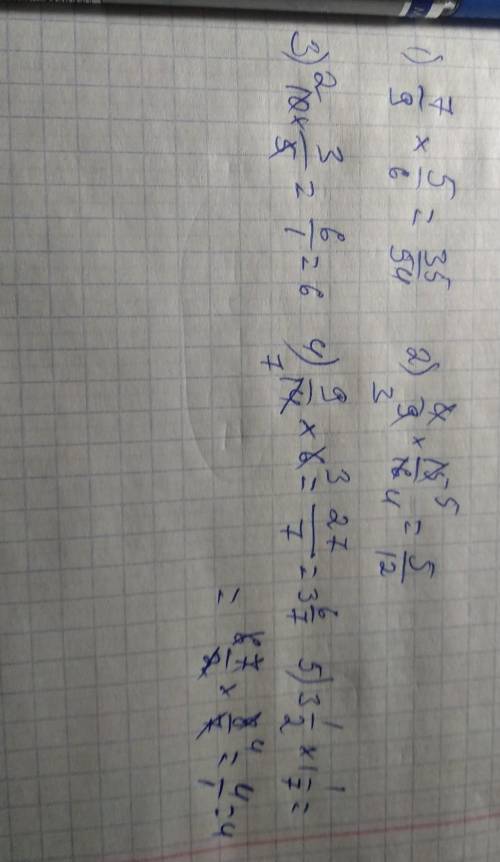 1) 7/9 × 5/6 = 35/54
2) 4/9 × 15/16 = 5/12
3 5 4
3) 10 × 3/5 = 6/1 = 6
2
4) 9/14 × 6 = 27/7 = 3 6/7
7 3
5) 3 1/2 × 1 1/7 =
= 7/2 × 8/7 = 4/1 = 4
4